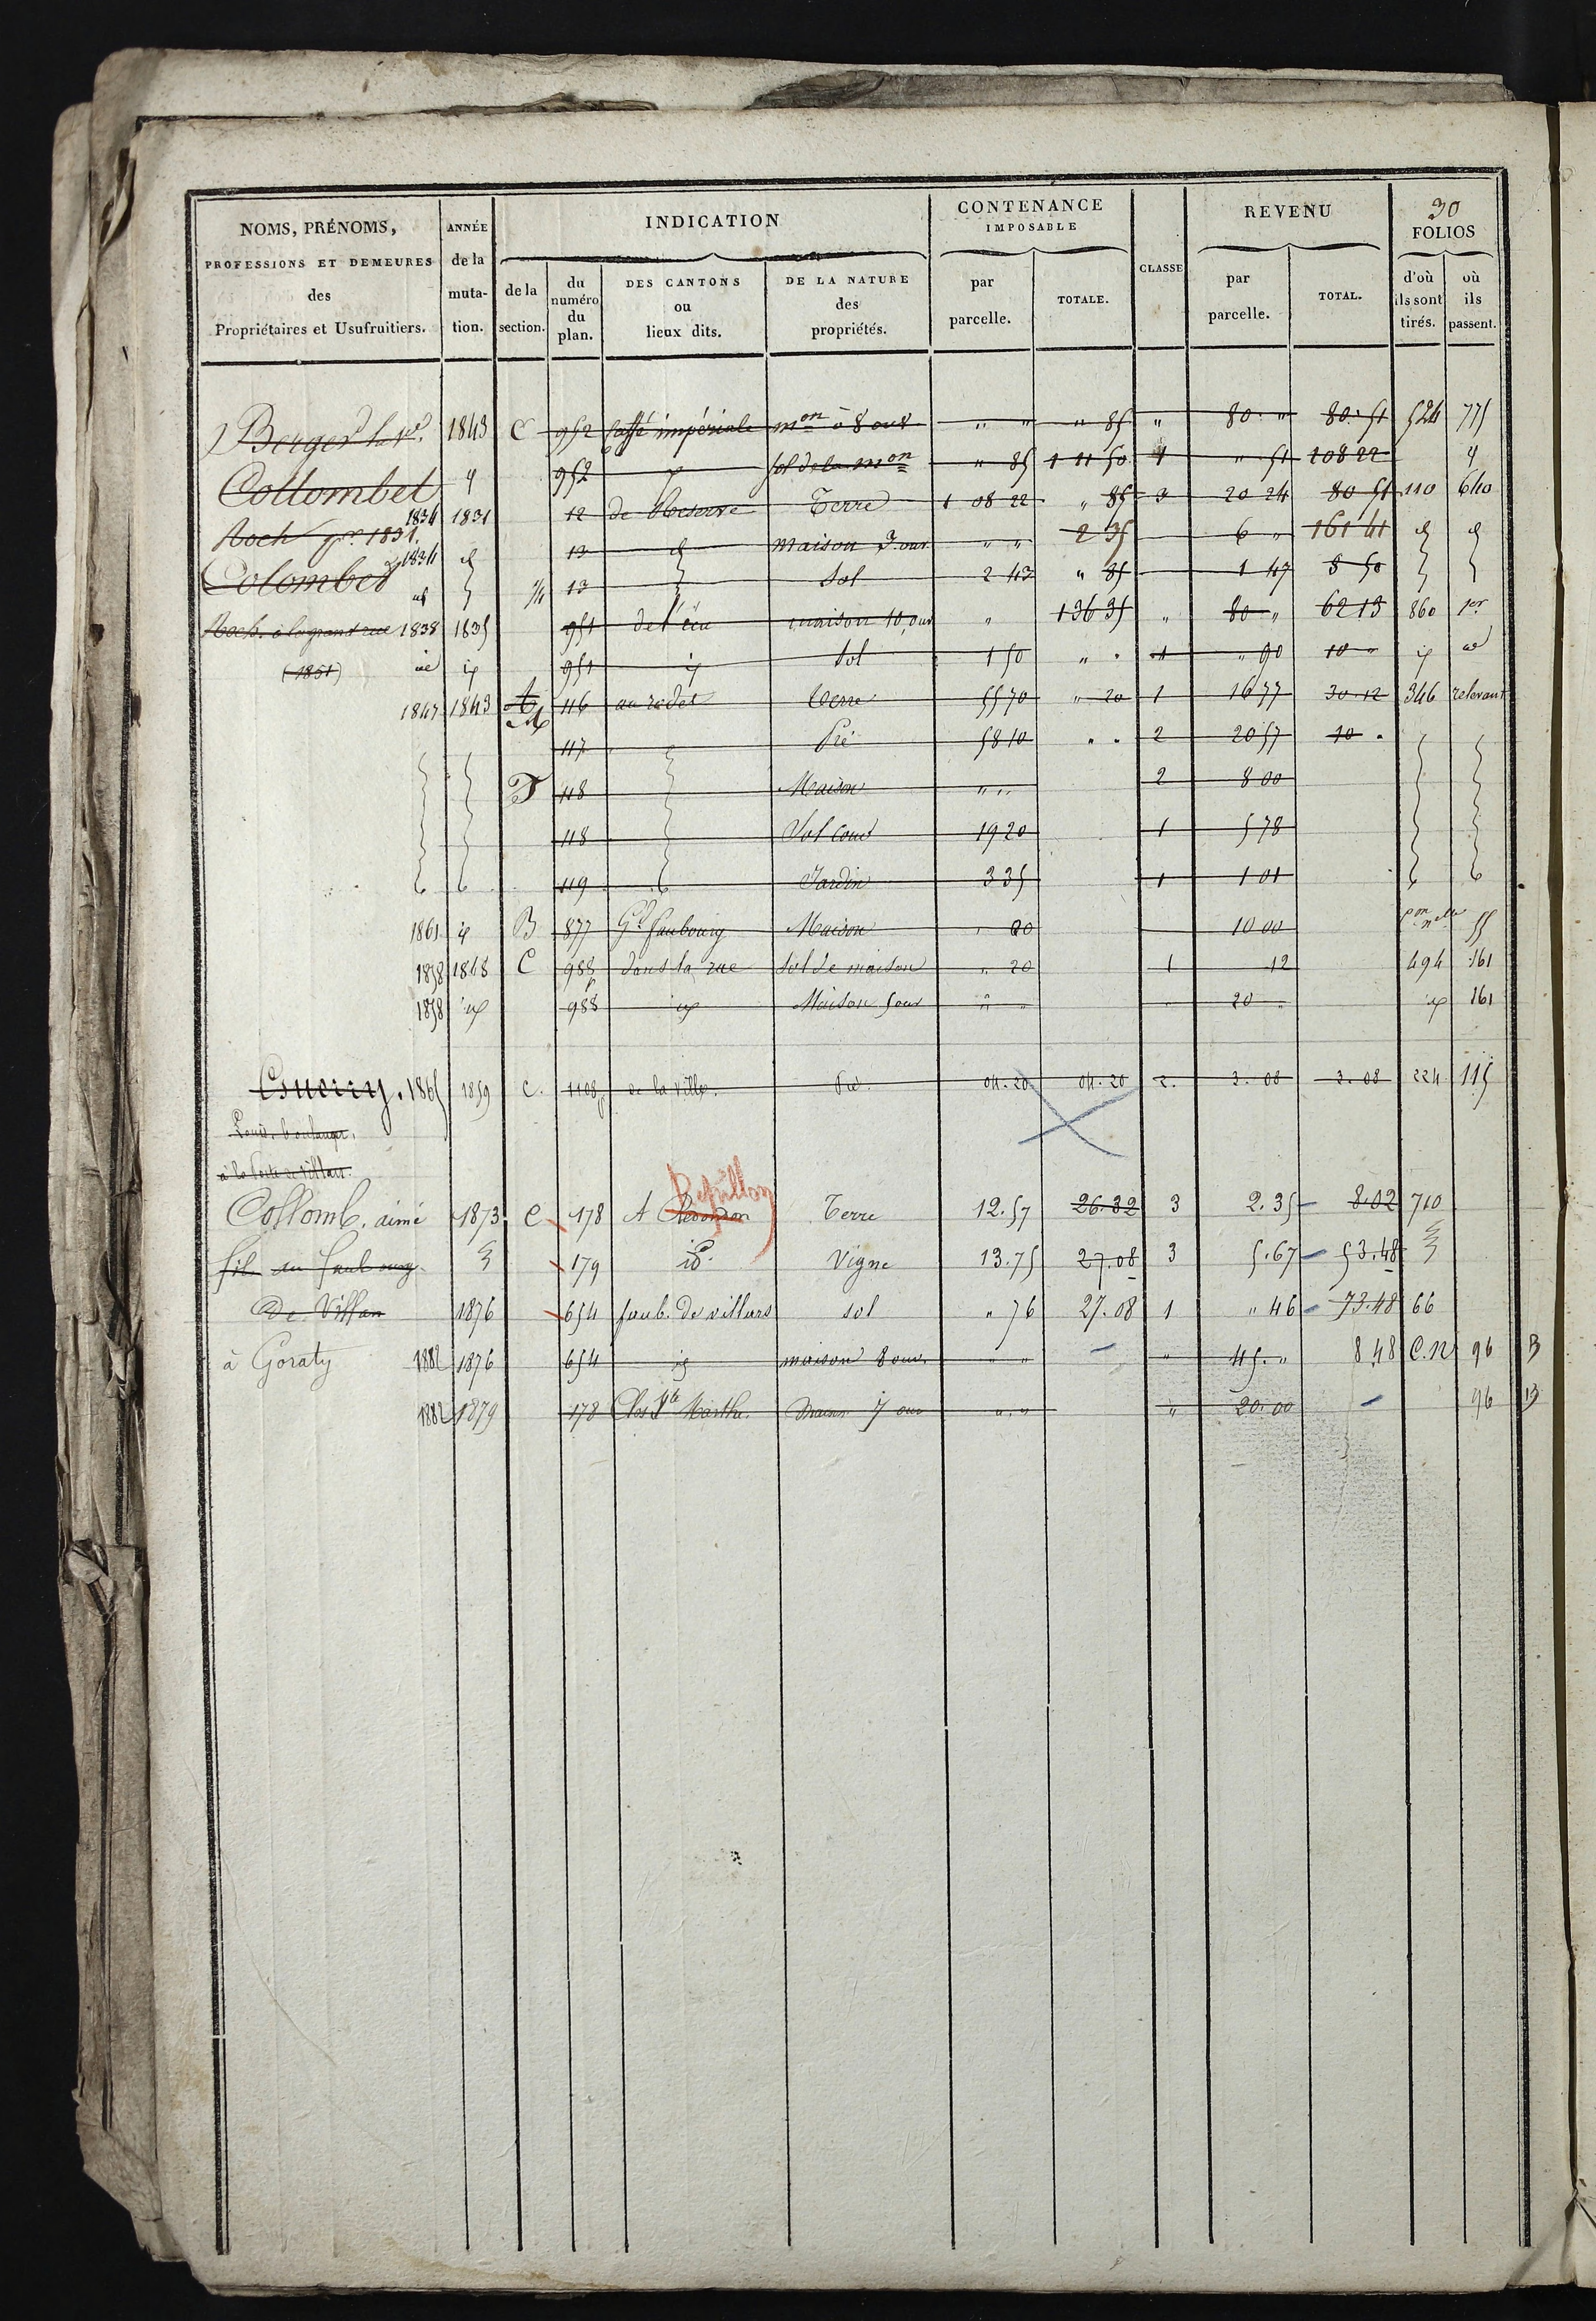 30
NOMS, PRÉNOMS, PROFESSIONS ET DEMEURES des Propriétaires et Usufruitiers. ANNÉE de la mutation. INDICATION de la section. du numéro du plan. DES CANTONS ou lieux dits. DE LA NATURE des propriétés. CONTENANCE IMPOSABLE par parcelle. TOTALE. CLASSE REVENU par parcelle. TOTAL. FOLIOS d'où ils sont tirés. où ils passent.
Berger 1843 C 952 impériale mon à 8 ouv " " " 85 " 80 " 80.51 524 775
Collombet 952 Sol de la mon " 85 1 11 50 1 " 51 108 22
1834 1831 12 de Reserve Terre 1 08 22 " 85 3 20 24 80 51 110 640
Roch 1831. 13 maison 3 ouv " " 2 35 6 " 161 41
Colombet 1834 13 Sol 2 43 " 85 1 47 8 50
Roch. à la grand rue 1838 1835 951 de l'écu maison 10 ouv " 136 35 " 80 " 62 13 860 1er
(1851) 951 Sol 1 50 " " 1 " 90 10 "
1847 1843 116 Terre 55 70 " 20 1 16 77 30 12 346 relevant
117 Pré 58 10 " " 2 20 57 10 "
118 Maison " " 2 8 00
118 Sol Cour 19 20 1 5 78
119 Jardin 3 35 1 1 01
1861 B 877 Gd faubourg Maison " 20 10 00 55
1858 1848 C 988 dans la rue Sol de maison " 20 1 12 494 161
1858 988 Maison 5 ouv " " 20 " 161
1865 1859 C. 1108 de la ville. Pré. 04.20 04.20 2. 3.08 3.08 224 115
Louis, boulanger,
à la Porte de Villars
Pepillon
Collomb, aimé 1873 C 178 A Terre 12.57 26.32 3 2.35 8.02 710
fils au faubourg 179 id. Vigne 13.75 27.08 3 5.67 53.48
De Villars 1876 654 faub. De villars sol " 76 27.08 1 " 46 73.48 66
à Goraty 1882 1876 654 maison 8 ouv. " " " 45. " 8 48 C.N 96 B
1882 1879 178 Clos Ste Marthe. Maison 7 ouv " " " 20.00 96 B